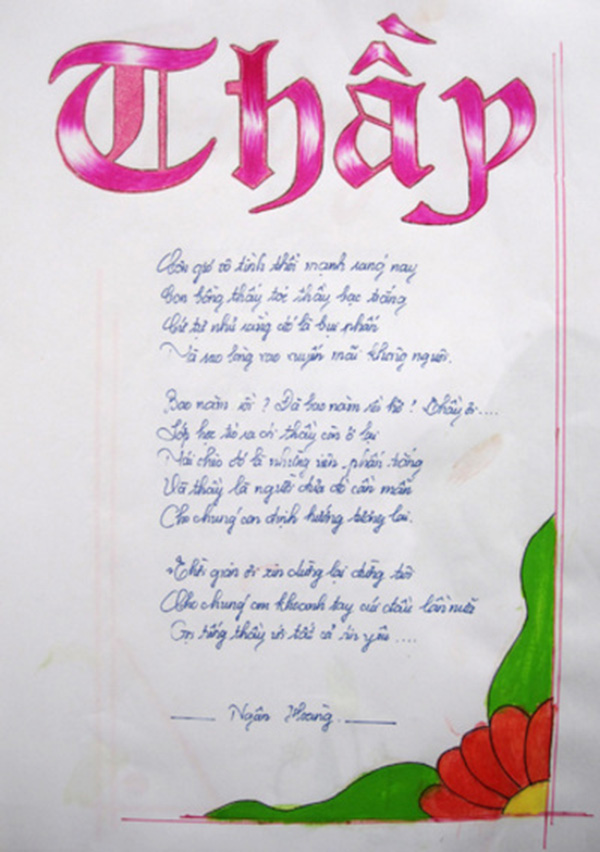 Thầy
Cơn gió vô tình thổi mạnh sáng nay
Con bỗng thấy tóc thầy bạc trắng
Cứ tự nhủ rằng đó là bụi phấn
Mà sao lòng xao xuyến mãi không nguôi.
Bao năm rồi ? Đã bao năm rồi hở ? Thầy ơi....
Lớp học trò ra đi thầy còn ở lại
Mái chèo đó là những viên phấn trắng
Và thầy là người đưa đò cần mẫn
Cho chúng con định hướng tương lai.
Thời gian ơi xin dừng lại đừng trôi
Cho chúng em khoanh tay cúi đầu lần nữa
Gọi tiếng thầy với tất cả tin yêu ....
Ngân Hoàng.